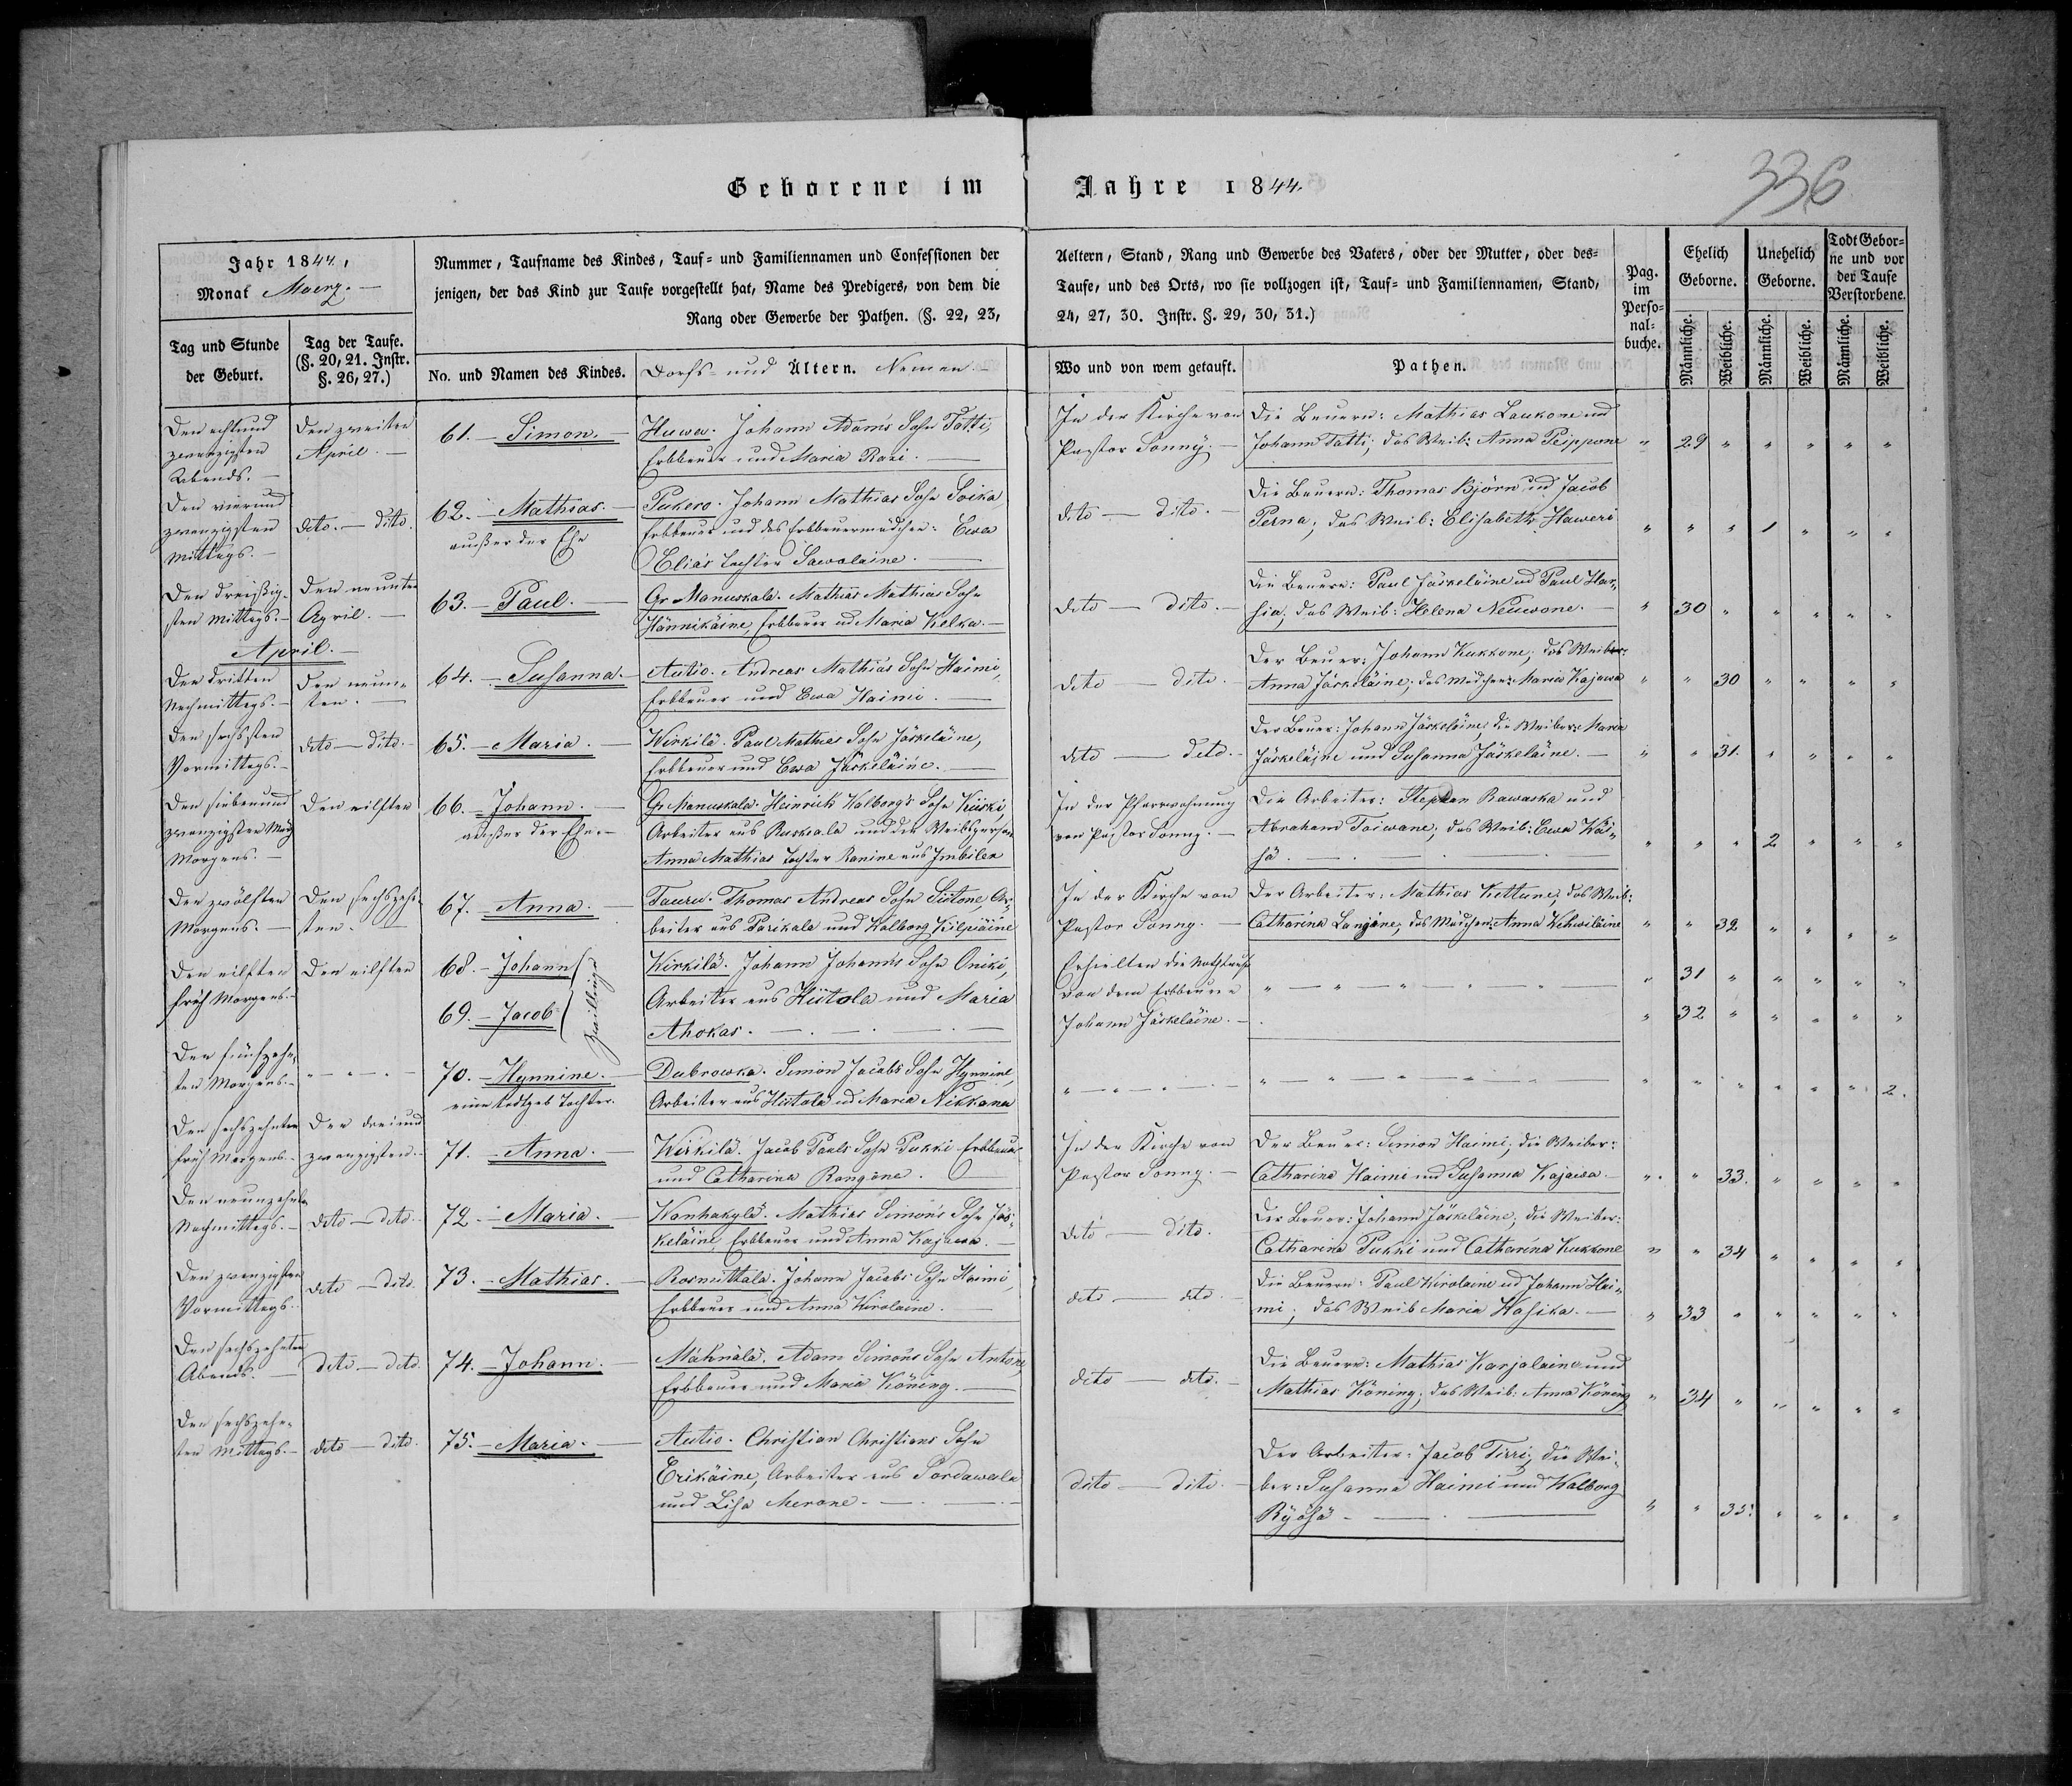 Geborene im Jahre 1844.
336
Jahr 1844,
Monat Maerz.
Nummer, Taufname des Kindes, Tauf- und Familiennamen und Confessionen der
jenigen, der das Kind zur Taufe vorgestellt hat, Name des Predigers, von dem die
Rang oder Gewerbe der Pathen. (§. 22, 23,
Aeltern, Stand, Rang und Gewerbe des Vaters, oder der Mutter, oder des-
Taufe, und des Orts, wo sie vollzogen ist, Tauf- und Familiennamen, Stand,
24, 27, 30. Instr. §. 29, 30, 31.)
Pag. im Perso-nal-buche.
Ehelich Geborne.
Unehelich Geborne.
Todt Gebor-ne und vor der Taufe Verstorbene.
Tag und Stunde der Geburt.
Tag der Taufe. (§. 20, 21. Instr. §. 26, 27.)
No. und Namen des Kindes.
Dorfs- und Ältern. Nemen.
Wo und von wem getauft.
Pathen.
Männliche. Weibliche. Männliche. Weibliche. Männliche. Weibliche.
Den achtund
zwanzigsten
Abends.
Den zweiten
April.
61. Simon.
Huwa. Johann Adam's Sohn Tatti,
Erbbauer und Maria Razi.
In der Kirche von
Pastor Sonny.
Die Bauern: Mathias Laukone und
Johann Tatti; das Weib: Anna Peippone
" 29 " " " " "
Den vierund
zwanzigsten
Mittags.
dito. dito.
62. Mathias.
außer der Ehe
Pukero. Johann Mathias Sohn Soika,
Erbbauer und das Erbbauermädchen: Ewa
Elias Tochter Sawolaine.
dito dito.
Die Bauern: Thomas Björn und Jacob
Perna; das Weib: Elisabeth Haweri
" " " 1 " " "
Den dreißig-
sten Mittags.
Den neunten
April.
63. Paul.
Gr. Manuskala. Mathias Mathias Sohn
Hännikäine, Erbbauer ud Maria Kelka.
dito dito.
Die Bauern: Paul Jäskeläine ud Paul Har-
sia; das Weib: Helena Neuwone.
" 30 " " " " "
April.
Den dritten
Nachmittags.
Den neun-
ten.
64. Susanna.
Autio. Andreas Mathias Sohn Haimi,
Erbbauer und Ewa Haimi.
dito dito.
Der Bauer: Johann Kukkone; das Weib:
Anna Jäskeläine; das Mädchen: Maria Kajawa
" " 30 " " " "
Den sechsten
Vormittags.
dito dito.
65. Maria.
Wirkilä. Paul Mathias Sohn Jäskeläine,
Erbbauer und Ewa Jäskeläine.
dito dito.
Der Bauer: Johann Jäskeläine; die Weiber: Maria
Jäskeläine und Susanna Jäskeläine.
" " 31. " " " "
Den siebenund
zwanzigsten März
Morgens.
Den eilften
66. Johann.
außer der Ehe.
Gr. Manuskala. Heinrich Walborg's Sohn Kiiski,
Arbeiter aus Ruskeala und die Weibsperson
Anna Mathias Tochter Ranine aus Imbilax
In der Pfarrwohnung
von Pastor Sonny.
Die Arbeiter: Stephan Rawaska und
Abraham Toiwane; das Weib: Ewa Wäi-
sä.
" " " 2 " " "
Den zwölften
Morgens.
Den sechszehn-
ten.
67. Anna.
Tauru. Thomas Andreas Sohn Siitone, Ar-
beiter aus Parikala und Walborg Kilpiäine
In der Kirche von
Pastor Sonny.
Der Arbeiter: Mathias Kettune; das Weib:
Catharina Lanjäne; das Mädchen: Anna Wehwiläine
" " 32 " " " "
Den eilften
früh Morgens.
Den eilften
68. Johann
69. Jacob
Zwillinge
Wirkilä. Johann Johann's Sohn Oniki,
Arbeiter aus Hiitola und Maria
Ahokas.
Erhielten die Nothtaufe
von dem Erbbauern
Johann Jäskeläine.
" 31 " " " " "
" 32 " " " " "
Den fünfzehn-
ten Morgens.
70. Hynnine.
eine todtgeb. Tochter.
Dubrowka. Simon Jacobs Sohn Hynnine,
Arbeiter aus Hiitola ud Maria Nikkana
" " " " " " 2.
Den sechszehnten
früh Morgens.
Den dreiund
zwanzigsten.
71. Anna.
Wirkilä. Jacob Pauls Sohn Pukki Erbbauer
und Catharina Rongone.
In der Kirche von
Pastor Sonny.
Der Bauer: Simon Haimi; die Weiber:
Catharina Haimi und Susanna Kajawa.
" " 33. " " " "
Den neunzehnten
Nachmittags.
dito dito.
72. Maria.
Wanhakylä. Mathias Simon's Sohn Jäs-
keläine, Erbbauer und Anna Kajawa.
dito dito.
Der Bauer: Johann Jäskeläine; die Weiber:
Catharina Pukki und Catharina Kukkone
" " 34 " " " "
Den zwanzigsten
Vormittags.
dito dito.
73. Mathias.
Rosnuttala. Johann Jacobs Sohn Haimi,
Erbbauer und Anna Wirolaine.
dito dito.
Die Bauern: Paul Wirolaine ud Johann Hai-
mi; das Weib Maria Wasika.
" 33 " " " " "
Den sechszehnten
Abends.
dito dito.
74. Johann.
Mähnälä. Adam Simons Sohn Antone,
Erbbauer und Maria Köning.
dito dito.
Die Bauern: Mathias Karjalaine und
Mathias Köning; das Weib: Anna Köning
" 34 " " " " "
Den sechszehn-
ten Mittags.
dito dito.
75. Maria.
Autio. Christian Christians Sohn
Erikäine, Arbeiter aus Sordawala
und Lisa Merone.
dito dito.
Der Arbeiter: Jacob Tirri; die Wei-
ber: Susanna Haimi und Walborg
Ryösä
" " 35. " " " "